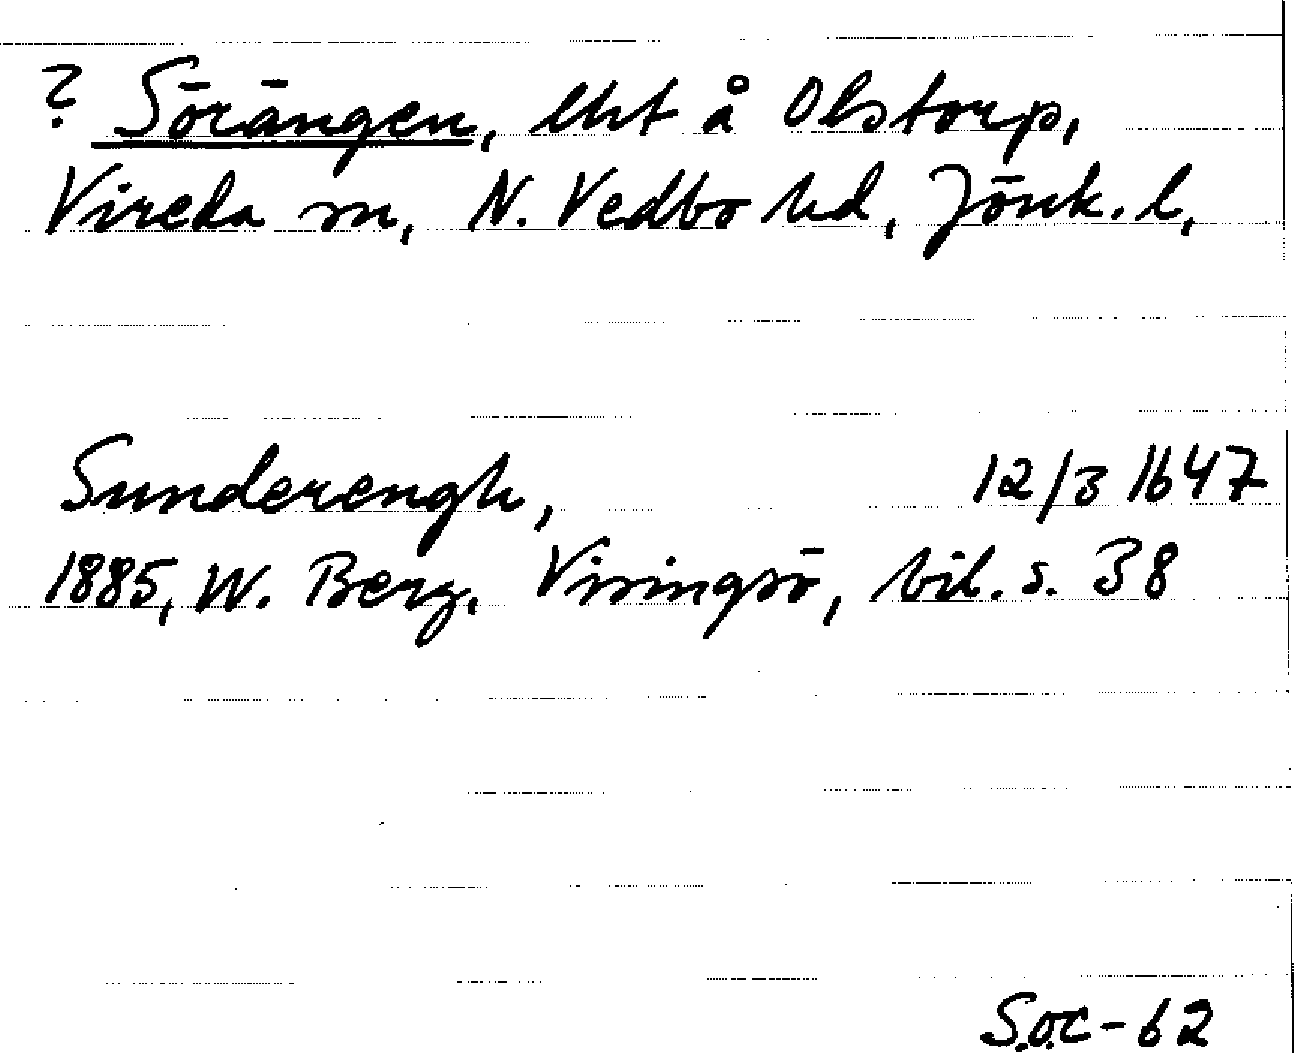 ? Sörängen, lht å Olstorp,
Vireda sn, N. Vedbo hd, Jönk. l.
Sunderengh, 12/3 1647
1885, W. Berg. Visingsö, bil. s. 38
S.O.C-62